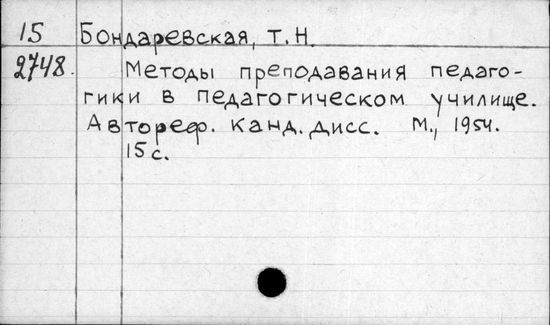 15 Бондаревская, Т.Н.
2748. Методы преподавания педаго-
гики в педагогическом училище.
Автореф. канд. дисс. М., 1954.
15 с.